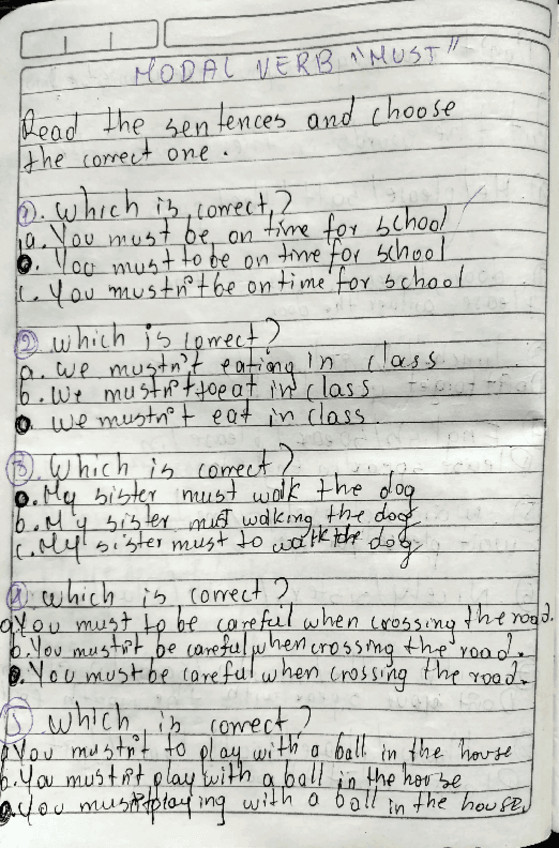 MODAL VERB "MUST"
Read the sentences and choose
the correct one.
1. Which is correct?
a. You must be on time for school
b. You must to be on time for school
c. You mustn't be on time for school
2 which is correct?
a. we mustn't eating in class
b. We mustn't to eat in class
c. we mustn't eat in class.
3. Which is correct?
a. My sister must walk the dog
b. My sister must walking the dog
c. My sister must to walk the dog
4 which is correct?
a. You must to be careful when crossing the road.
b. You mustn't be careful when crossing the road.
c. You must be careful when crossing the road.
5 which is correct?
a You mustn't to play with a ball in the house
b. You mustn't play with a ball in the house
c. You mustn't playing with a ball in the house.